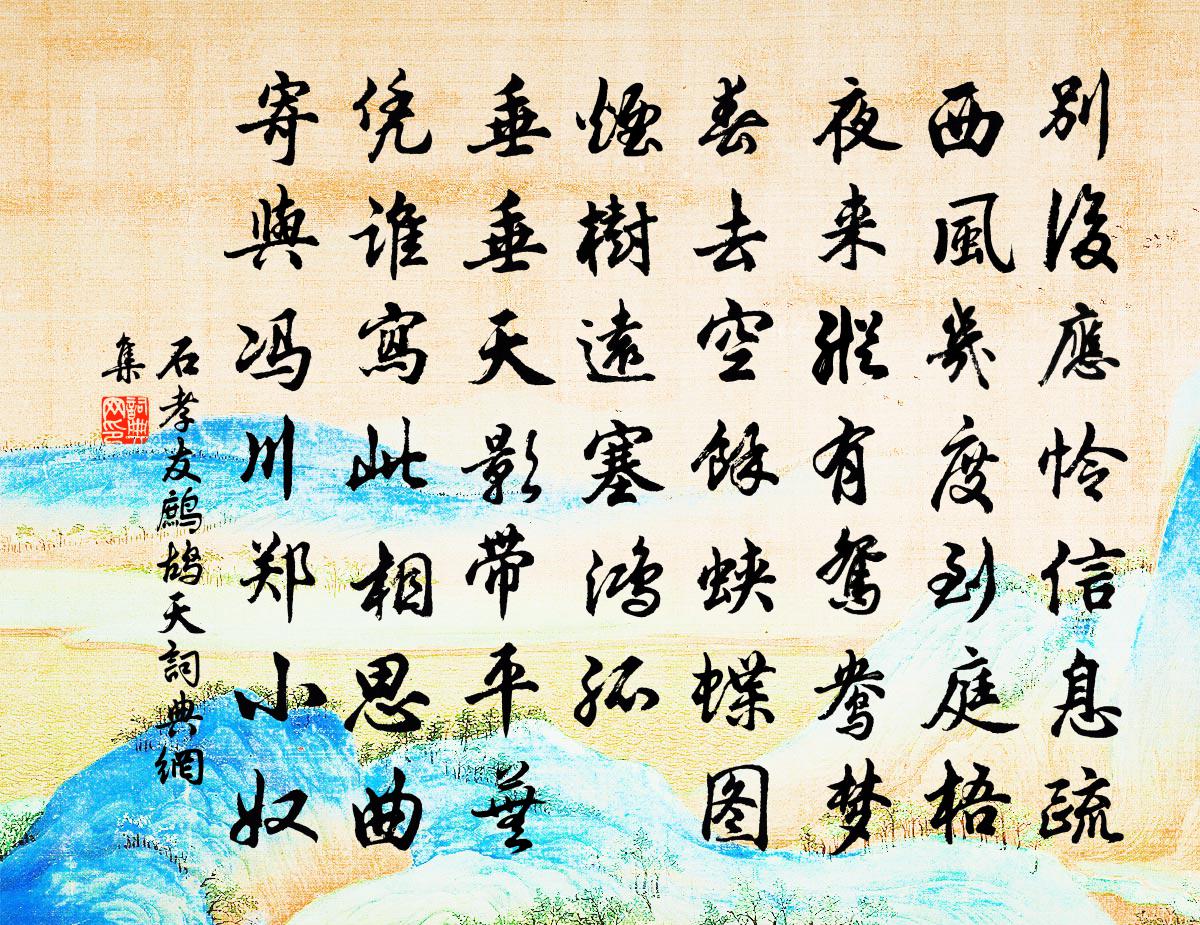 别後應怜信息疏
西風幾度到庭梧
夜来縱有鴛鴦梦
春去空餘蛺蝶图
煙樹遠塞鴻孤
垂垂天影帶平蕪
凭誰寫此相思曲
寄與冯川郑小奴
石孝友鷓鴣天詞典網
集
詞典网印